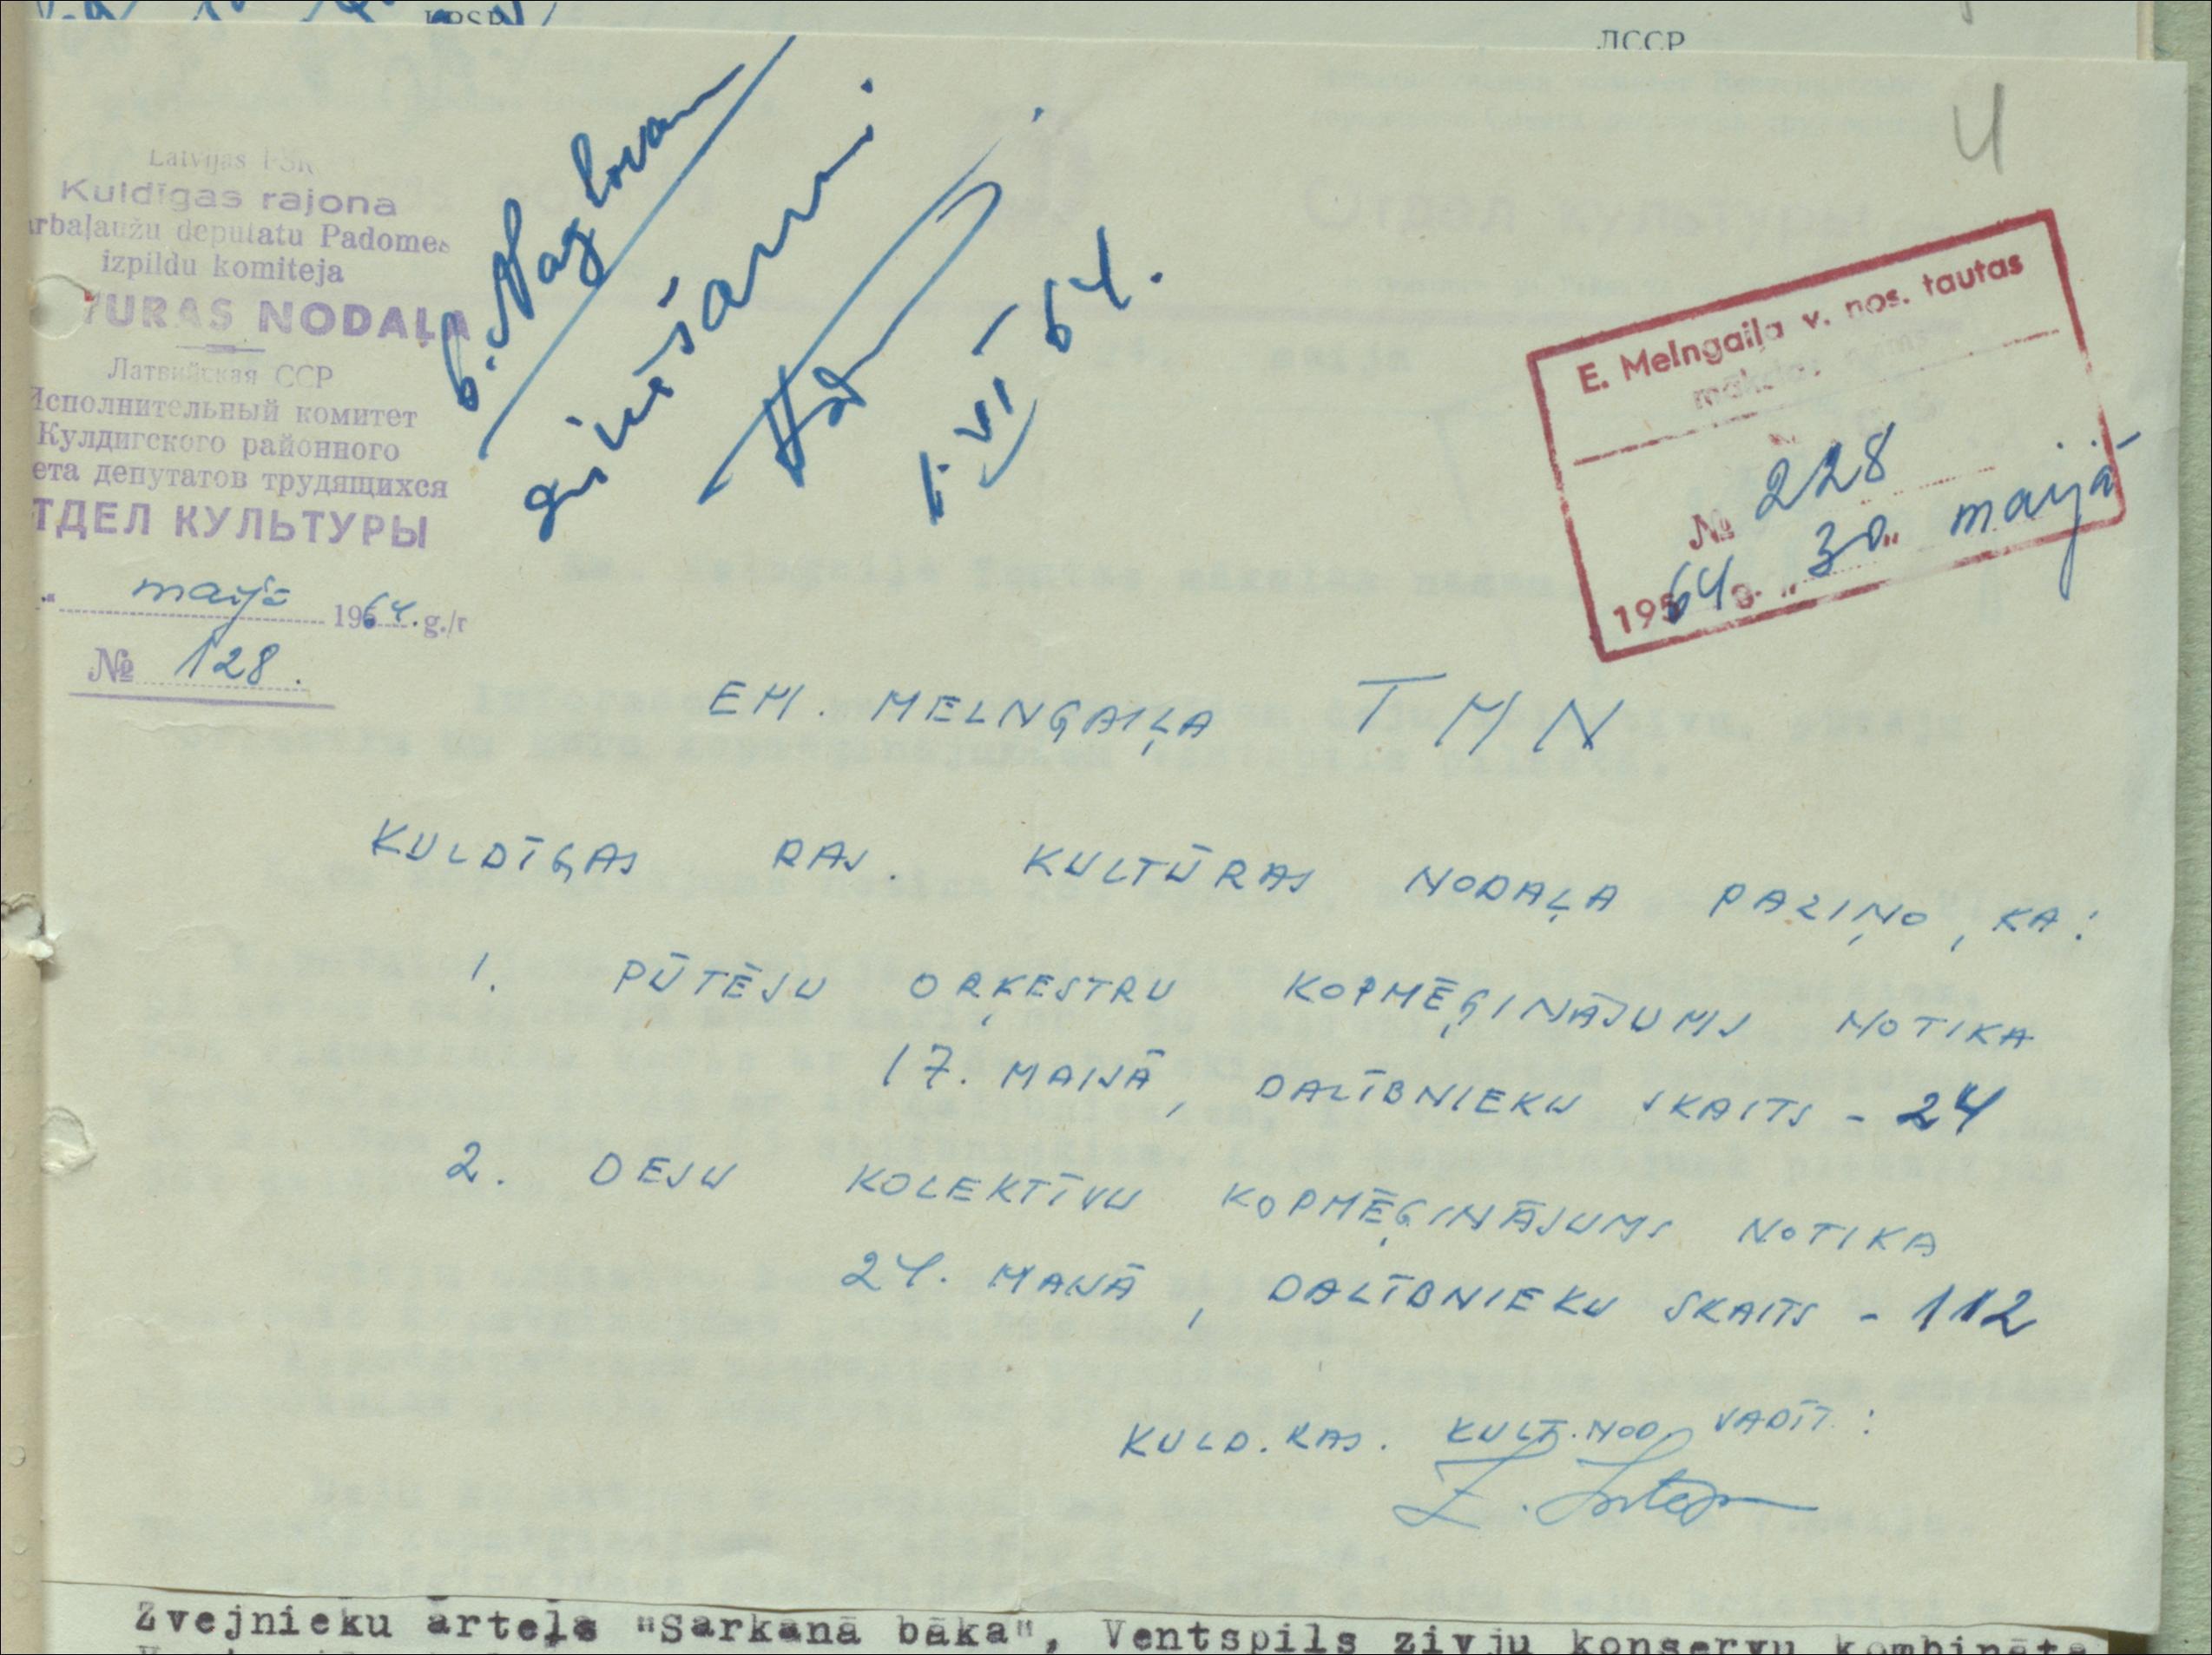 ЛССР
4
Latvijas PSR
Kuldīgas rajona
arbaļaužu deputatu Padomes
izpildu komiteja
TURAS NODAĻA
Латвийская ССР
Исполнительный комитет
Кулдигского районного
ета депутатов трудящихся
ТДЕЛ КУЛЬТУРЫ
" maijā 1964. g./г
№ 128.
1. VI 64.
E. Melngaiļa v. nos. tautas
№ 228
195 64 g. " 30 " maijā
EM. MELNGAIĻA TMN
KULDĪGAS RAJ. KULTŪRAS NODAĻA PAZIŅO, KA:
1. PŪTĒJU ORĶESTRU KOPMĒĢINĀJUMS NOTIKA
17. MAIJĀ, DALĪBNIEKU SKAITS - 24
2. DEJU KOLEKTĪVU KOPMĒĢINĀJUMS NOTIKA
24. MAIJĀ, DALĪBNIEKU SKAITS - 112
KULD. RAJ. KULT. NOD. VADĪT.:
Zvejnieku ārteļs "Sarkanā bāka", Ventspils zivju konservu kombināts